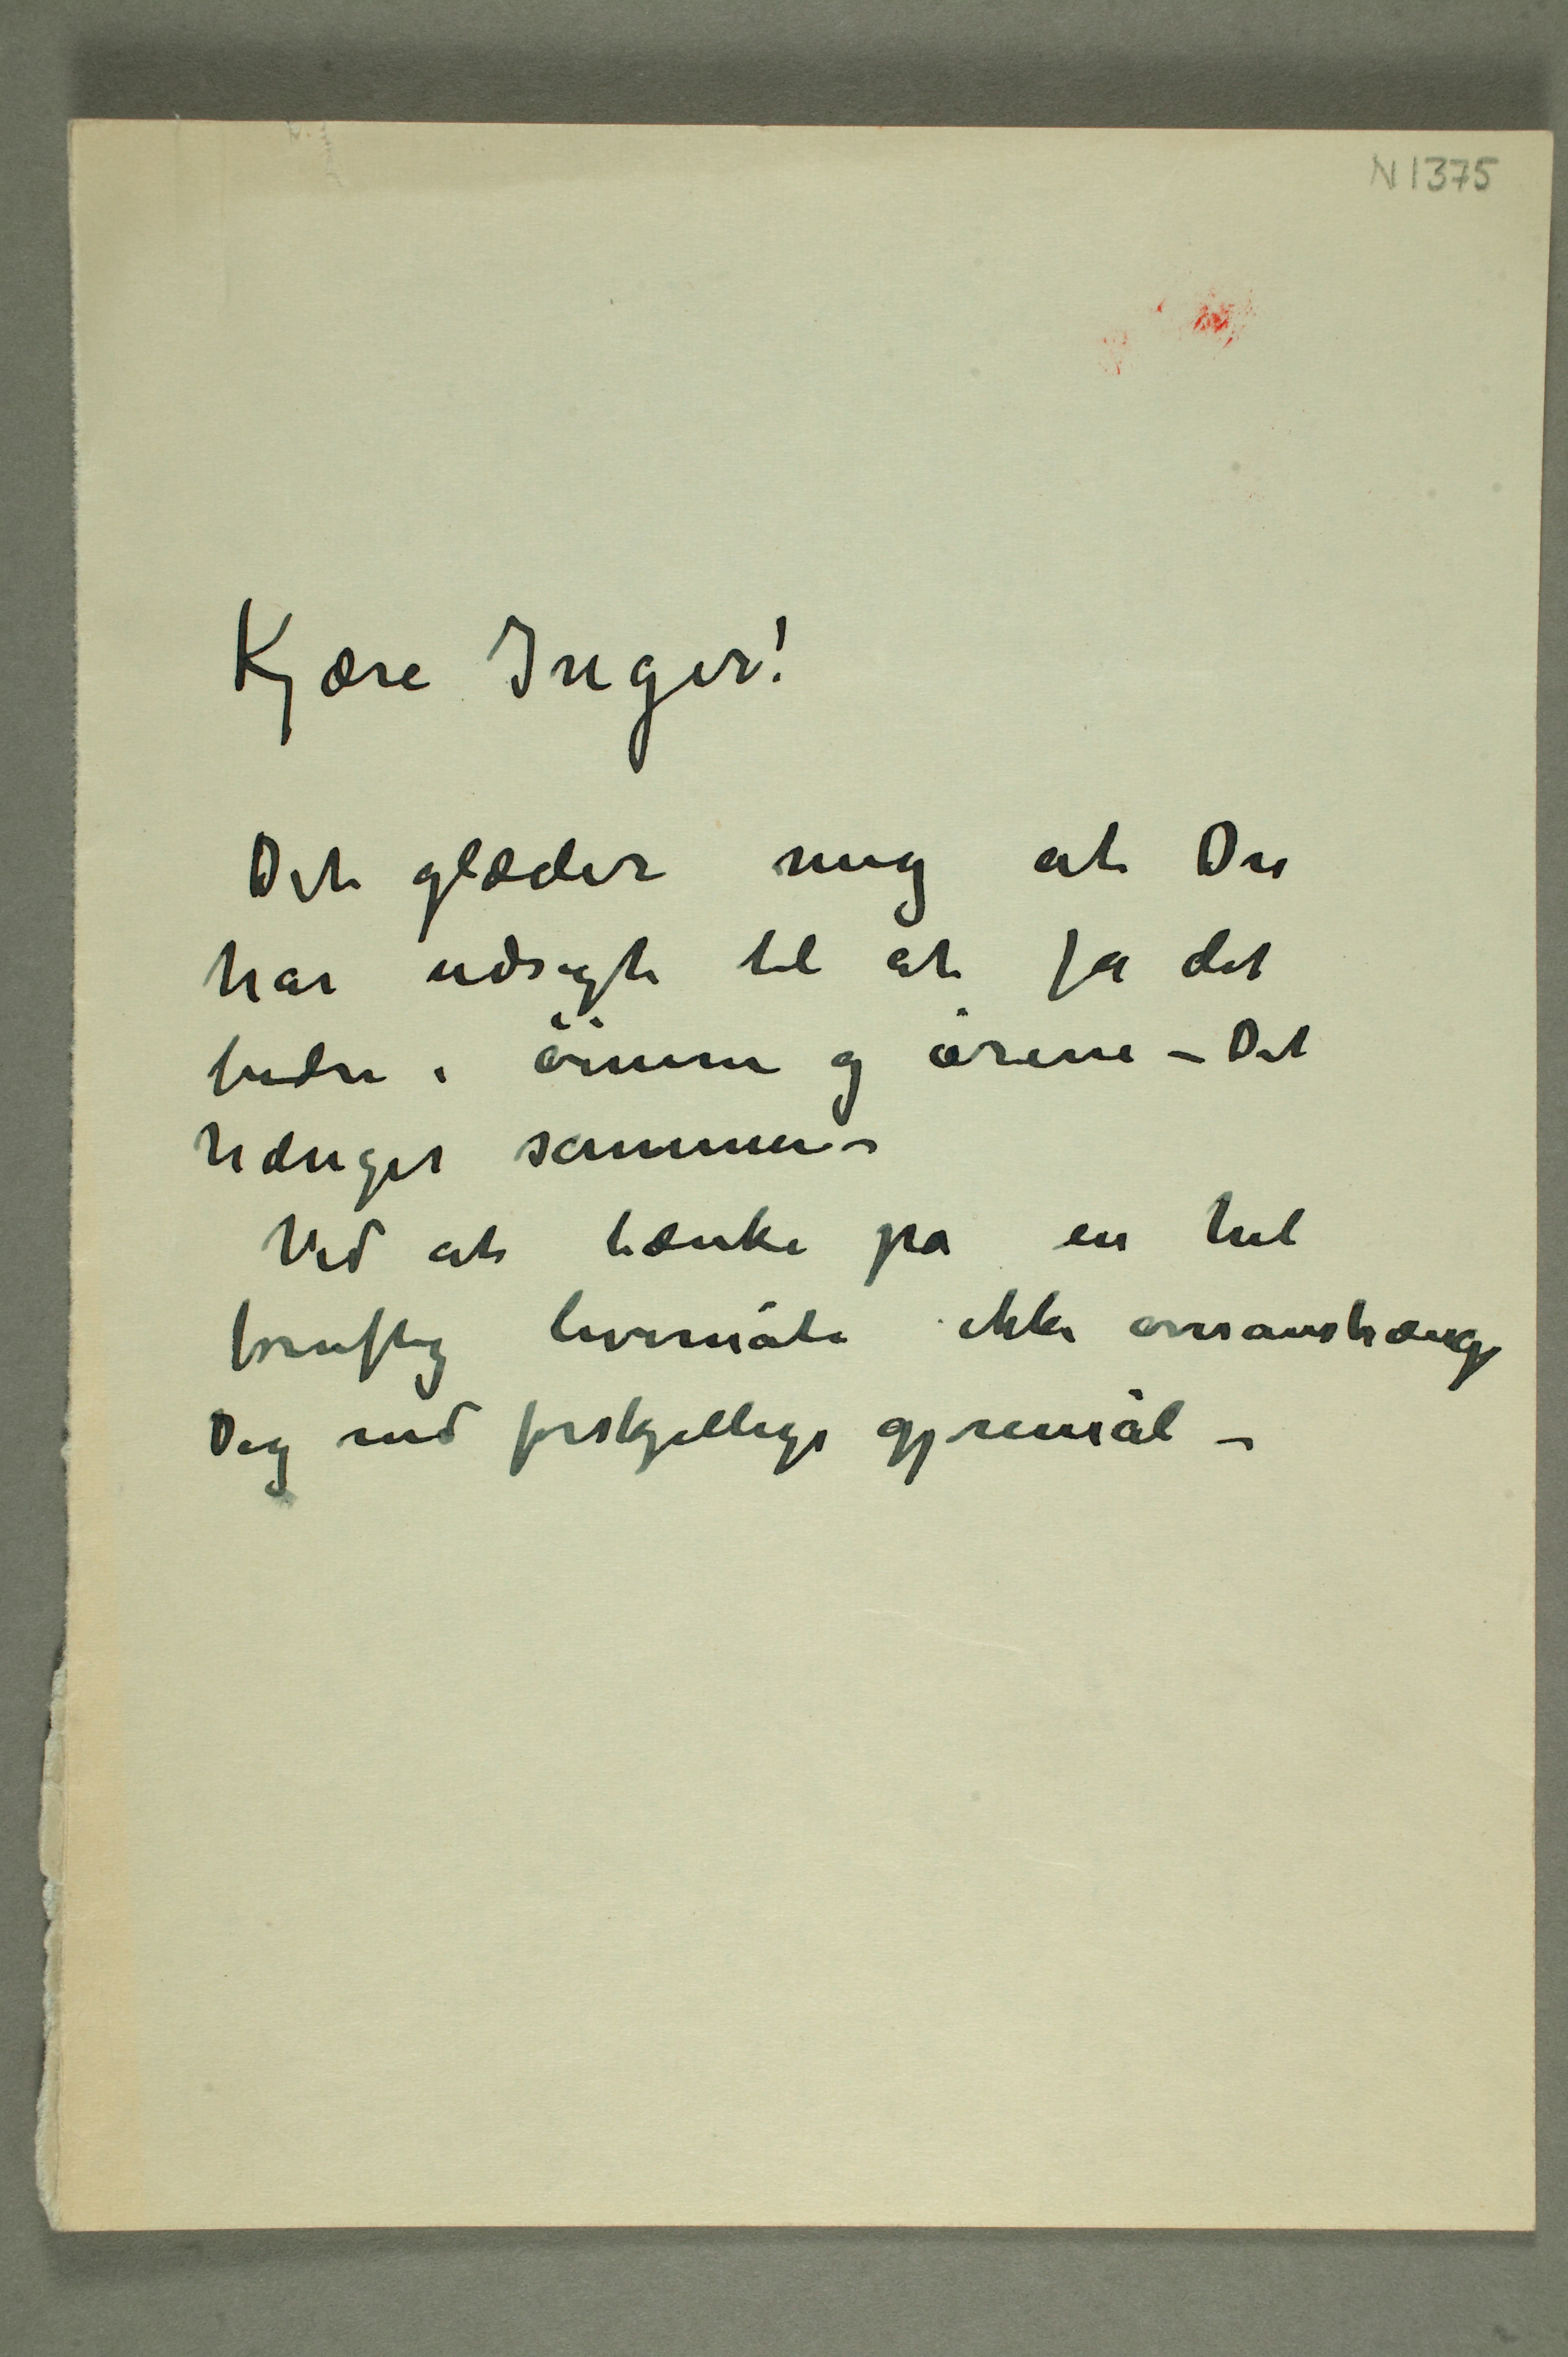 N 1375
Kjære Inger!
Det glæder mig at Du
har udsigt til at få det
bedre i öinene og ørene – Det
hænger sammen –
Ved at tænke på en hel
fornuftig levemåte ikke overanstrænge
Deg med forskjellige gjøremål –